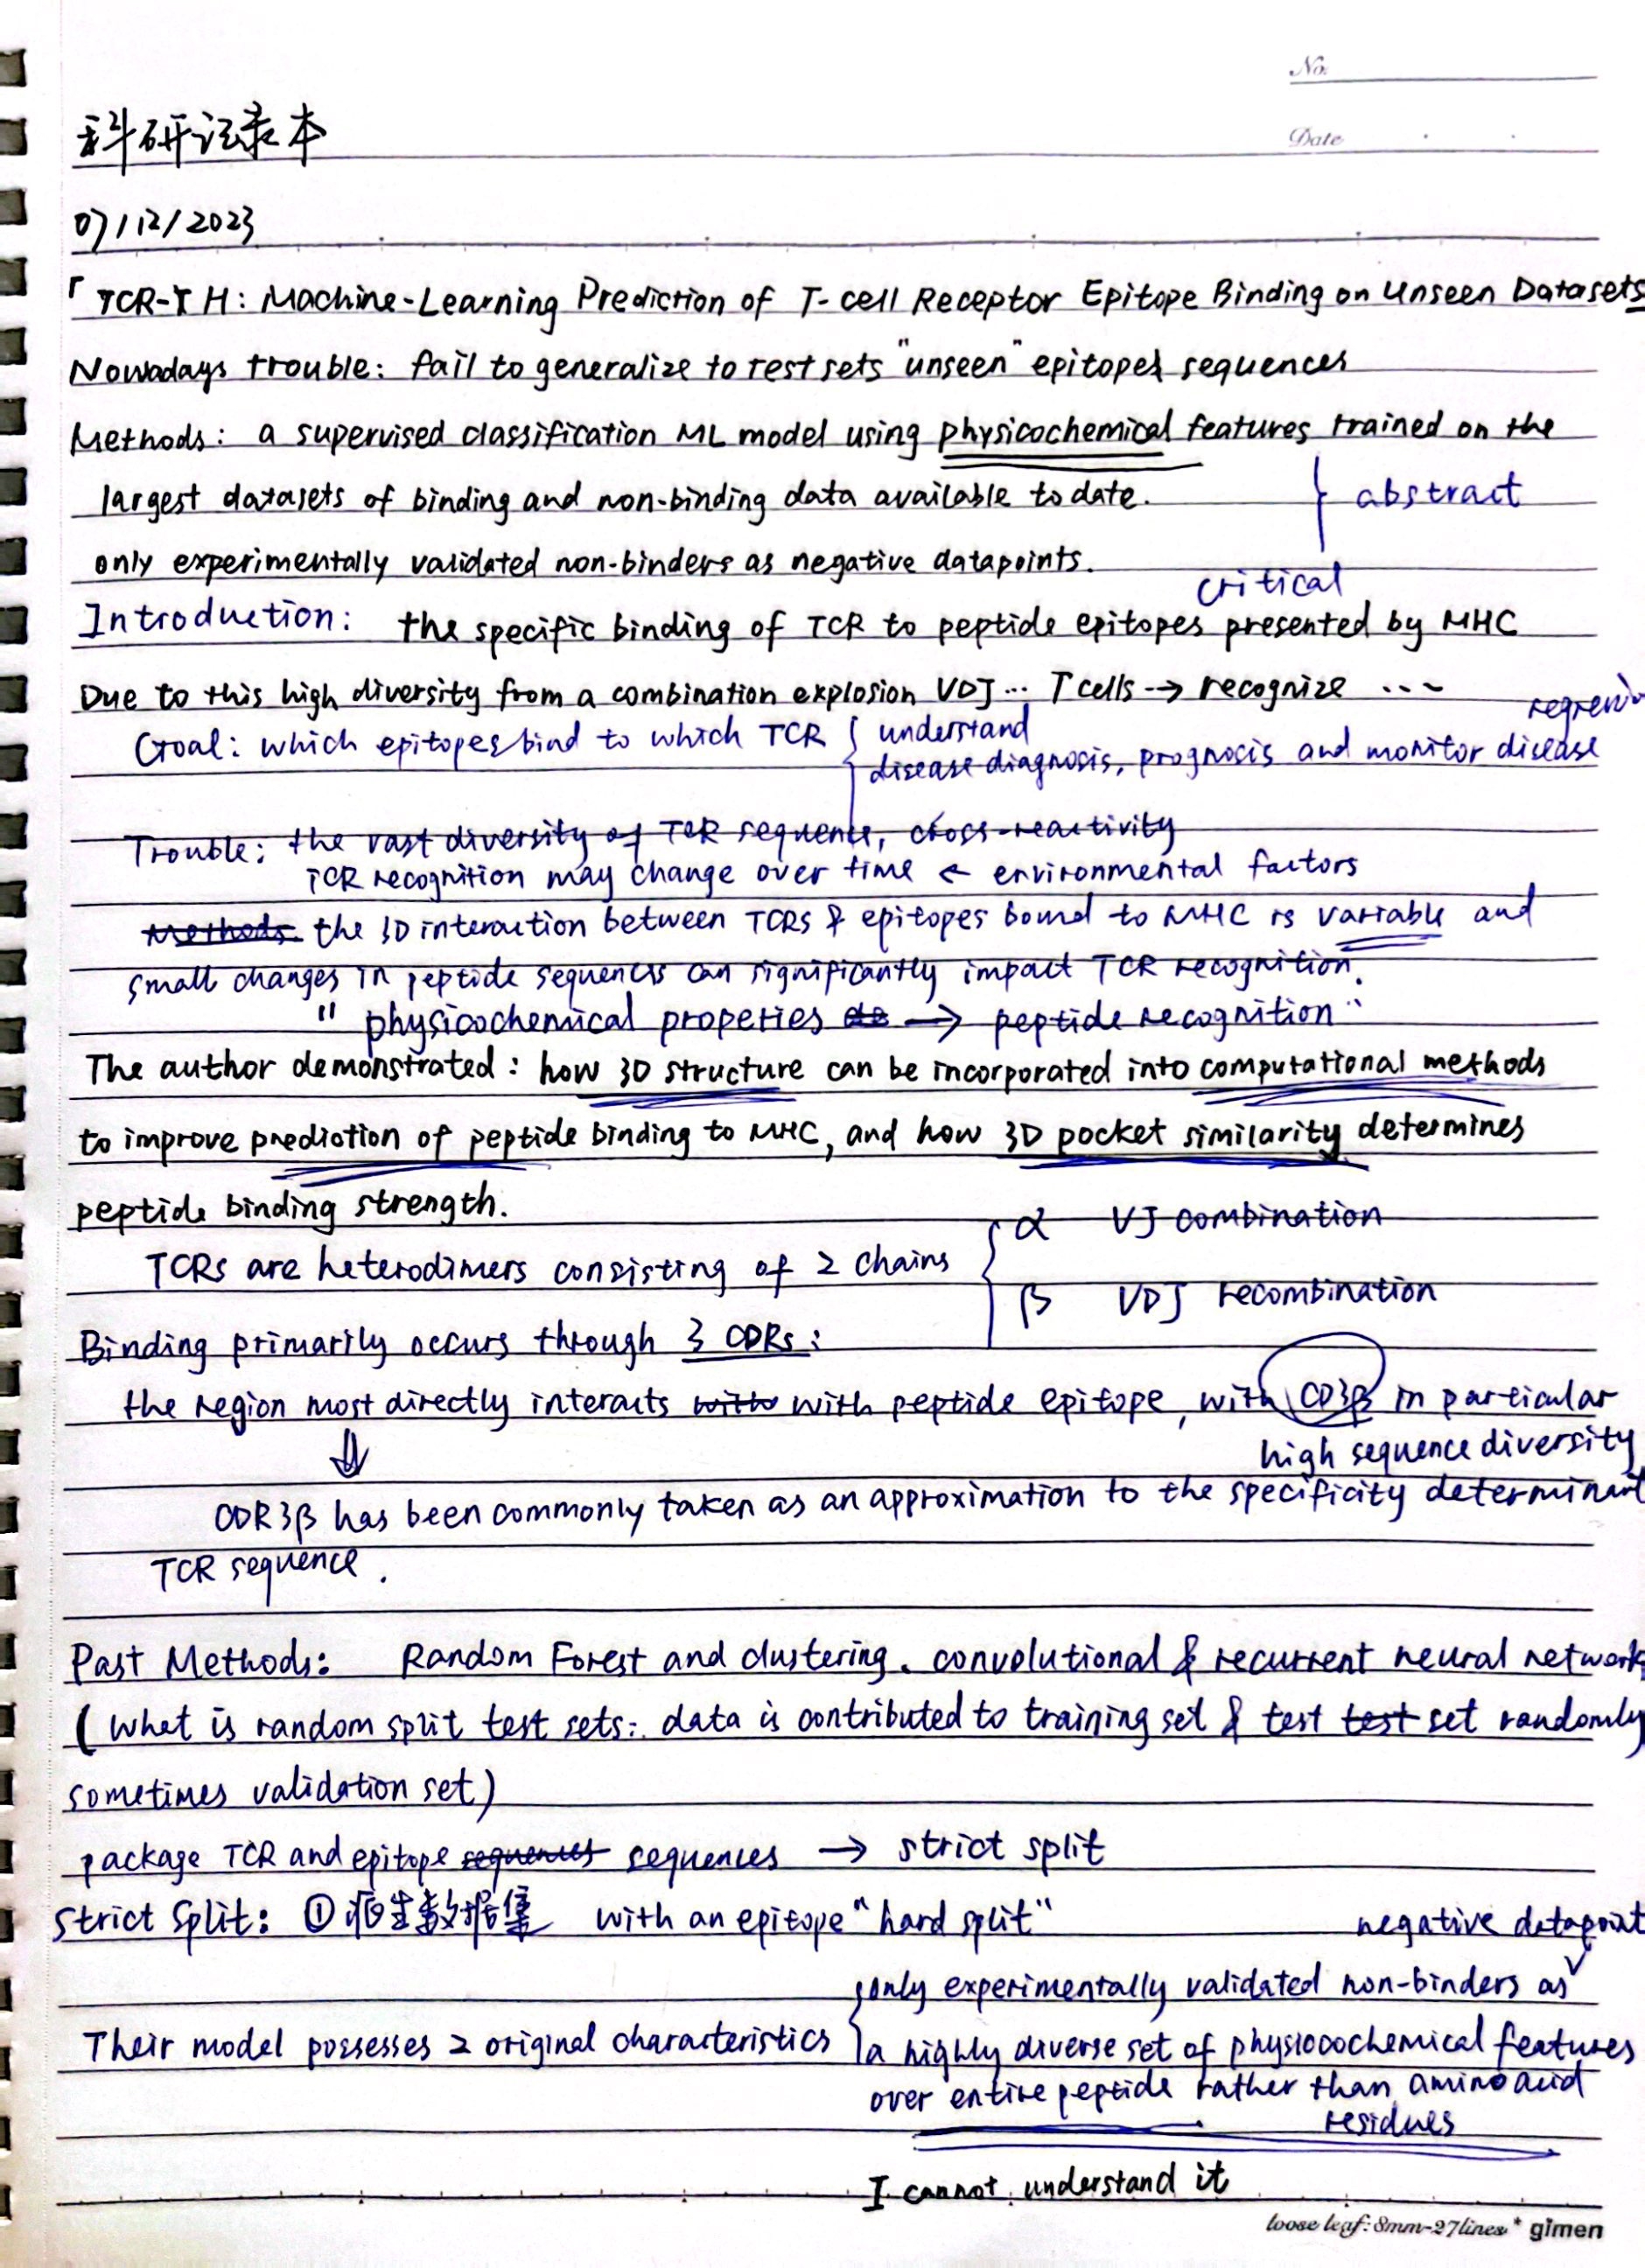 No.
科研记录本
Date
07/12/2023
「TCR-TH: Machine-Learning Prediction of T-cell Receptor Epitope Binding on Unseen Datasets
Nowadays trouble: fail to generalize to test sets "unseen" epitopes sequences
Methods: a supervised classification ML model using physicochemical features trained on the
largest datasets of binding and non-binding data available to date.
abstract
only experimentally validated non-binders as negative datapoints.
critical
Introduction: the specific binding of TCR to peptide epitopes presented by MHC
Due to this high diversity from a combination explosion VDJ... T cells → recognize ...
Goal: which epitopes bind to which TCR { understand
disease diagnosis, prognosis and monitor disease
Trouble: the vast diversity of TCR sequence, cross-reactivity
TCR recognition may change over time ← environmental factors
Methods the 3D interaction between TCRs & epitopes bound to MHC is variable and
small changes in peptide sequences can significantly impact TCR recognition.
" physicochemical properties → peptide recognition "
The author demonstrated: how 3D structure can be incorporated into computational methods
to improve prediction of peptide binding to MHC, and how 3D pocket similarity determines
peptide binding strength.
α VJ combination
TCRs are heterodimers consisting of 2 chains
β VDJ recombination
Binding primarily occurs through 3 CDRs:
the region most directly interacts with with peptide epitope, with CD3β in particular
high sequence diversity
⇓
CDR3β has been commonly taken as an approximation to the specificity determinant
TCR sequence.
Past Methods: Random Forest and clustering. convolutional & recurrent neural network
(What is random split test sets: data is contributed to training set & test test set randomly
sometimes validation set)
package TCR and epitope sequences sequences → strict split
Strict Split: ①原生数据集 with an epitope "hard split"
negative datapoint
only experimentally validated non-binders as
Their model possesses 2 original characteristics
a highly diverse set of physicochemical features
over entire peptide rather than amino acid
residues
I cannot understand it
loose leaf: 8mm-27lines * gimen